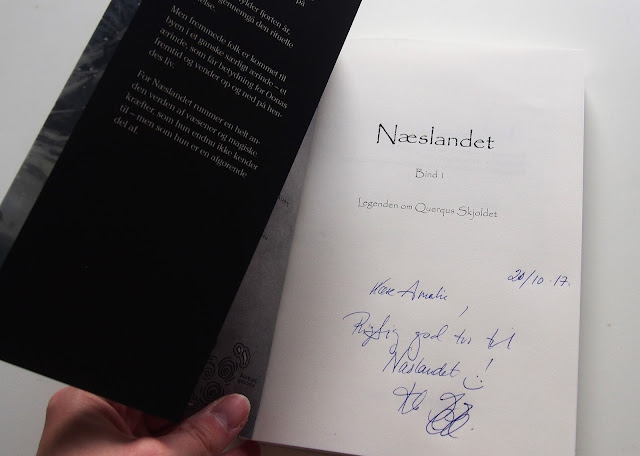 på
fylder fjorten år,
gennemgå den rituelle
else.
Men fremmede folk er kommet til
byen i et ganske særligt ærinde – et
ærinde, som får betydning for Oonas
fremtid og vender op og ned på hen-
des liv.
For Næslandet rummer en helt an-
den verden af væsener og magiske
kræfter, som hun endnu ikke kender
til – men som hun er en afgørende
del af.
Næslandet
Bind 1
Legenden om Querqus Skjoldet
20/10-17.
Kære Amalie,
Rigtig god tur til
Næslandet!